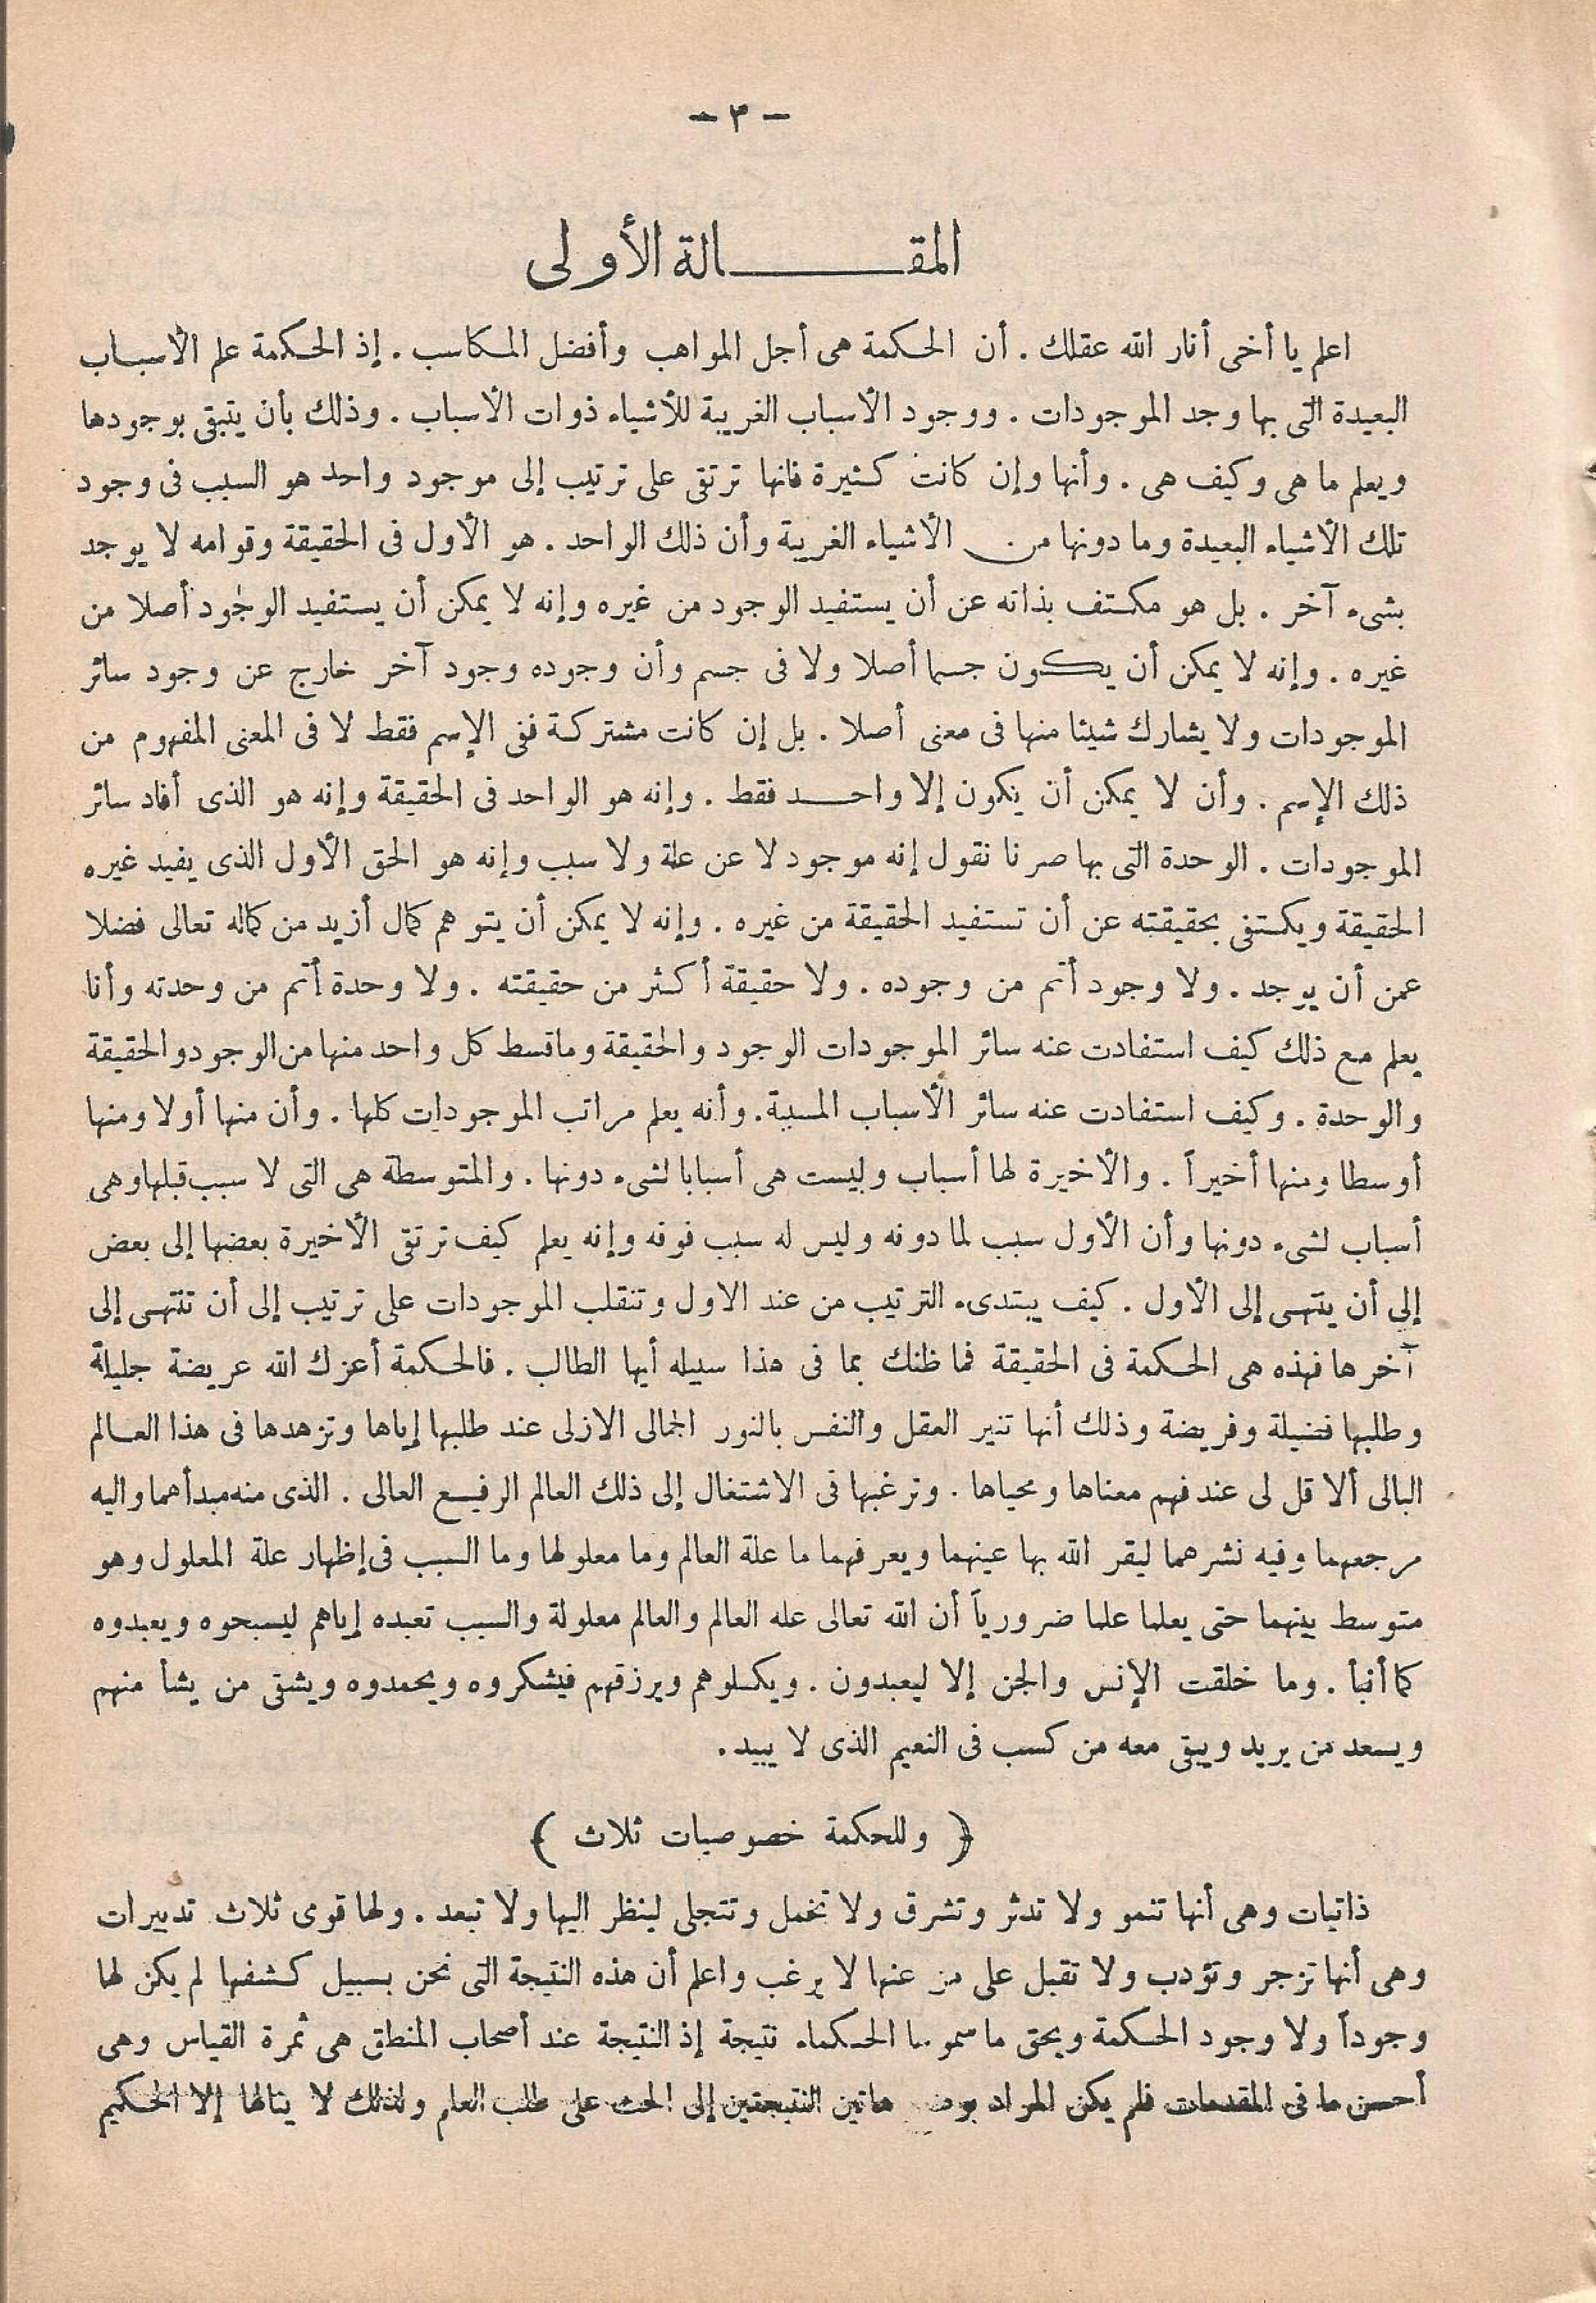 - ٣ -
المقالة الأولى
اعلم يا أخى أنار الله عقلك . أن الحكمة هى أجل المواهب وأفضل المكاسب . إذ الحكمة علم الأسباب
البعيدة التى بها وجد الموجودات . ووجود الأسباب الغريبة للأشياء ذوات الأسباب . وذلك بأن يتبقى بوجودها
ويعلم ما هى وكيف هى . وأنها وإن كانت كثيرة فانها ترتقى على ترتيب إلى موجود واحد هو السبب فى وجود
تلك الأشياء البعيدة وما دونها من الأشياء الغريبة وأن ذلك الواحد . هو الأول فى الحقيقة وقوامه لا يوجد
بشىء آخر . بل هو مكتف بذاته عن أن يستفيد الوجود من غيره وإنه لا يمكن أن يستفيد الوجود أصلا من
غيره . وإنه لا يمكن أن يكون جسما أصلا ولا فى جسم وأن وجوده وجود آخر خارج عن وجود سائر
الموجودات ولا يشارك شيئا منها فى معنى أصلا . بل إن كانت مشتركة ففى الإسم فقط لا فى المعنى المفهوم من
ذلك الإسم . وأن لا يمكن أن يكون إلا واحد فقط . وإنه هو الواحد فى الحقيقة وإنه هو الذى أفاد سائر
الموجودات . الوحدة التى بها صرنا نقول إنه موجود لا عن علة ولا سبب وإنه هو الحق الأول الذى يفيد غيره
الحقيقة ويكتفى بحقيقته عن أن تستفيد الحقيقة من غيره . وإنه لا يمكن أن يتوهم كمال أزيد من كماله تعالى فضلا
عمن أن يوجد . ولا وجود أتم من وجوده . ولا حقيقة أكثر من حقيقته . ولا وحدة أتم من وحدته وأنا
يعلم مع ذلك كيف استفادت عنه سائر الموجودات الوجود والحقيقة وما قسط كل واحد منها من الوجود والحقيقة
والوحدة . وكيف استفادت عنه سائر الأسباب المسببة . وأنه يعلم مراتب الموجودات كلها . وأن منها أولا ومنها
أوسطا ومنها أخيراً . والأخيرة لها أسباب وليست هى أسبابا لشىء دونها . والمتوسطة هى التى لا سبب قبلها وهى
أسباب لشىء دونها وأن الأول سبب لما دونه وليس له سبب فوقه وإنه يعلم كيف ترتقى الأخيرة بعضها إلى بعض
إلى أن ينتهى إلى الأول . كيف يبتدىء الترتيب من عند الاول وتنقلب الموجودات على ترتيب إلى أن تنتهى إلى
آخرها فهذه هى الحكمة فى الحقيقة فما ظنك بما فى هذا سبيله أيها الطالب . فالحكمة أعزك الله عريضة جليلة
وطلبها فضيلة وفريضة وذلك أنها تنير العقل والنفس بالنور الجمالى الازلى عند طلبها إياها وتزهدها فى هذا العالم
البالى ألا قل لى عند فهم معناها ومحياها . وترغبها فى الاشتغال إلى ذلك العالم الرفيع العالى . الذى منه مبدأهما واليه
مرجعهما وفيه نشرهما ليقر الله بها عينهما ويعرفهما ما علة العالم وما معلولها وما السبب فى إظهار علة المعلول وهو
متوسط بينهما حتى يعلما علما ضرورياً أن الله تعالى عله العالم والعالم معلولة والسبب تعبده إياهم ليسبحوه ويعبدوه
كما أنبأ . وما خلقت الإنس والجن إلا ليعبدون . ويكلوهم ويرزقهم فيشكروه ويحمدوه ويشقى من يشأ منهم
ويسعد من يريد ويبقى معه من كسب فى النعيم الذى لا يبيد .
﴿ وللحكمة خصوصيات ثلاث ﴾
ذاتيات وهى أنها تنمو ولا تدثر وتشرق ولا تخمل وتتجلى لينظر اليها ولا تبعد . ولها قوى ثلاث تدبيرات
وهى أنها تزجر وتؤدب ولا تقبل على من عنها لا يرغب واعلم أن هذه النتيجة التى نحن بسبيل كشفها لم يكن لها
وجوداً ولا وجود الحكمة وبحق ما سموها الحكماء نتيجة إذ النتيجة عند أصحاب المنطق هى ثمرة القياس وهى
أحسن ما فى المقدمات فلم يكن المراد هاتين النتيجتين إلى الحث على طلب العلم ولذلك لا ينالها إلا الحكيم